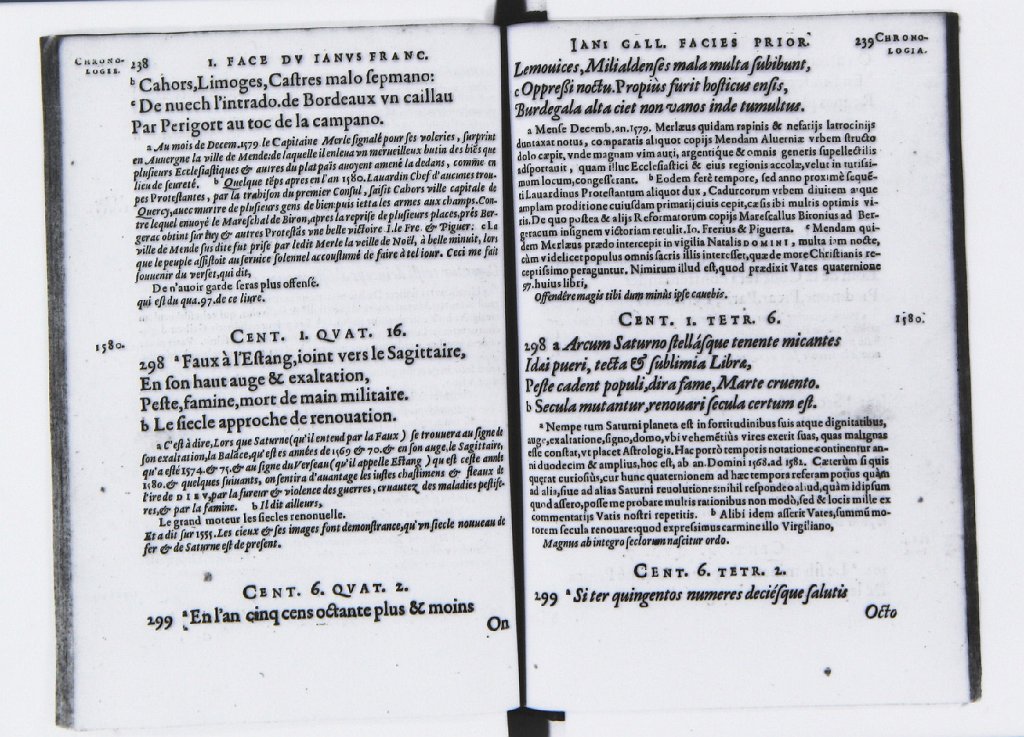 CHRONO-
LOGIE.
238
I. FACE DV IANVS FRANC.
b Cahors, Limoges, Castres malo sepmano:
c De nuech l'intrado. de Bordeaux vn caillau
Par Perigort au toc de la campano.
a Au mois de Decem. 1579. le Capitaine Merle signalé pour ses voleries, surprint
en Auuergne la ville de Mende: de laquelle il enleua vn merueilleux butin des biẽs que
plusieurs Ecclesiastiques & autres du plat païs auoyent amené la dedans, comme en
lieu de seureté. b Quelque tẽps apres en l'an 1580. Lauardin Chef d'aucunes trou-
pes Protestantes, par la trahison du premier Consul, saisit Cahors ville capitale de
Quercy, auec murtre de plusieurs gens de bien: puis ietta les armes aux champs. Con-
tre lequel enuoyé le Mareschal de Biron, apres la reprise de plusieurs places, prés Ber-
gerac obtint sur luy & autres Protestãs vne belle victoire I. le Fre. & Piguer. c La
ville de Mende sus dite fut prise par ledit Merle la veille de Noël, à belle minuit, lors
que le peuple assistoit au seruice solennel accoustumé de faire à tel iour. Ceci me fait
souuenir du verset, qui dit,
De n'auoir garde seras plus offensé.
qui est du qua. 97. de ce liure.
1580.
CENT. 1. QVAT. 16.
298 a Faux à l'Estang, ioint vers le Sagittaire,
En son haut auge & exaltation,
Peste, famine, mort de main militaire.
b Le siecle approche de renouation.
a C'est à dire, Lors que Saturne (qu'il entend par la Faux) se trouuera au signe de
son exaltation, la Balãce, qu'est és années de 1569 & 70. & en son auge, le Sagittaire,
qu'a esté 1574. & 75. & au signe du Verseau (qu'il appelle Estang) qu'est ceste année
1580. & quelques suiuants, on sentira d'auantage les iustes chastimens & fleaux de
l'ire de DIEV, par la fureur & violence des guerres, cruautez des maladies pestife-
res, & par la famine. b Il dit ailleurs,
Le grand moteur les siecles renouuelle.
Et a dit sur 1555. Les cieux & ses images font demonstrance, qu'vn siecle nouueau de
fer & de Saturne est de present.
CENT. 6. QVAT. 2.
299 a En l'an cinq cens octante plus & moins
On
IANI GALL. FACIES PRIOR.
239
CHRONO-
LOGIA.
Lemouices, Milialdensés mala multa subibunt,
c Oppressi noctu. Propiùs furit hosticus ensis,
Burdegala alta ciet non vanos inde tumultus.
a Mense Decemb. an. 1579. Merlæus quidam rapinis & nefarijs latrocinijs
duntaxat notus, comparatis aliquot copijs Mendam Aluerniæ vrbem structo
dolo cæpit, vnde magnam vim auri, argentique & omnis generis supellectilis
adsportauit, quam illuc Ecclesiastici & eius regionis accolæ, velut in tutissi-
mum locum, congesserant. b Eodem ferè tempore, sed anno proximè sequẽ-
ti Lauardinus Protestantium aliquot dux, Cadurcorum vrbem diuitem atque
amplam proditione cuiusdam primarij ciuis cepit, cæsis ibi multis optimis vi-
ris. De quo postea & alijs Reformatorum copijs Marescallus Bironius ad Ber-
geracum insignem victoriam retulit. Io. Frerius & Piguerra. c Mendam qui-
dem Merlæus prædo intercepit in vigilia Natalis DOMINI, multa iam nocte,
cùm videlicet populus omnis sacris illis interesset, quæ de more Christianis re-
ceptissimo peraguntur. Nimirum illud est, quod prædixit Vates quaternione
97. huius libri,
Offendére magis tibi dum minùs ipse cauebis.
CENT. 1. TETR. 6.
1580.
298 a Arcum Saturno stellásque tenente micantes
Idæi pueri, tecta & sublimia Libræ,
Peste cadent populi, dira fame, Marte cruento.
b Secula mutantur, renouari secula certum est.
a Nempe tum Saturni planeta est in fortitudinibus suis atque dignitatibus,
auge, exaltatione, signo, domo, vbi vehemẽtiùs vires exerit suas, quas malignas
esse constat, vt placet Astrologis. Hæc porrò temporis notatione continentur an-
ni duodecim & ampliùs, hoc est, ab an. Domini 1568. ad 1582. Cæterùm si quis
quærat curiosiùs, cur hunc quaternionem ad hæc tempora referam potiùs quàm
ad alia, siue ad alias Saturni reuolutiones: nihil respondeo aliud, quàm id ipsum
quod assero, posse me probare multis rationibus non modò, sed & locis mille ex
commentarijs Vatis nostri repetitis. b Alibi idem asserit Vates, summũ mo-
torem secula renouare: quod expressimus carmine illo Virgiliano,
Magnus ab integro seclorum nascitur ordo.
CENT. 6. TETR. 2.
299 a Si ter quingentos numeres deciésque salutis
Octo